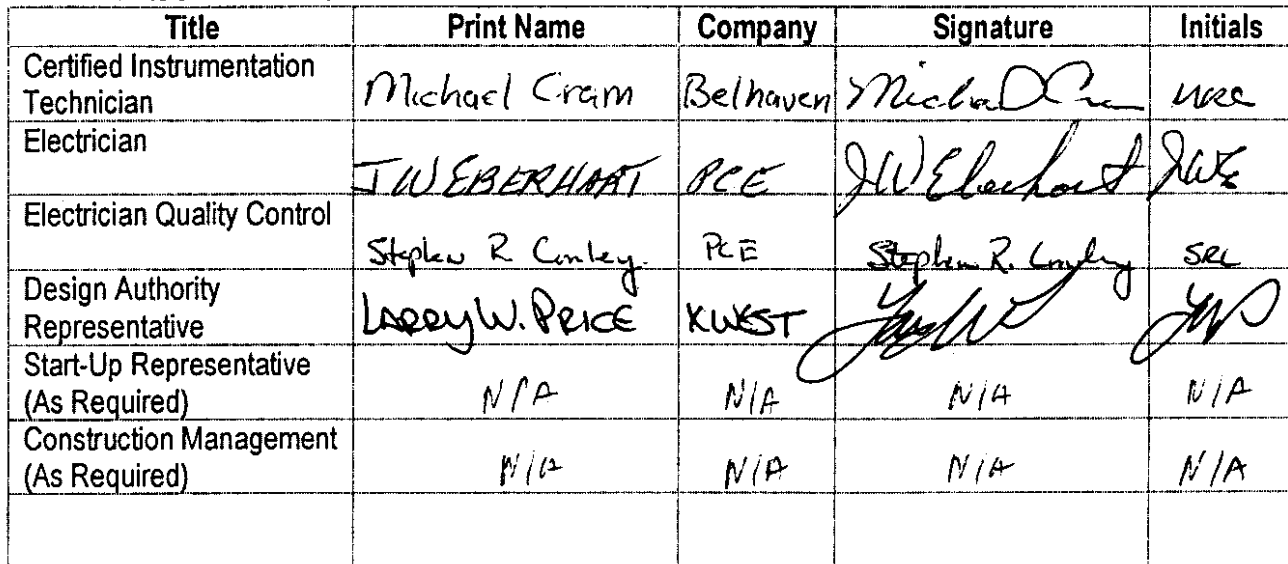 Title Print Name Company Signature Initials
Certified Instrumentation
Technician Michael Cram Belhaven Michael Cram
Electrician
JW EBERHART PCE JW Eberhart JWE
Electrician Quality Control
Stephen R Conley. PCE Stephen R. Conley SRC
Design Authority
Representative LARRY W. PRICE KWEST
Start-Up Representative
(As Required) N/A N/A N/A N/A
Construction Management
(As Required) N/A N/A N/A N/A